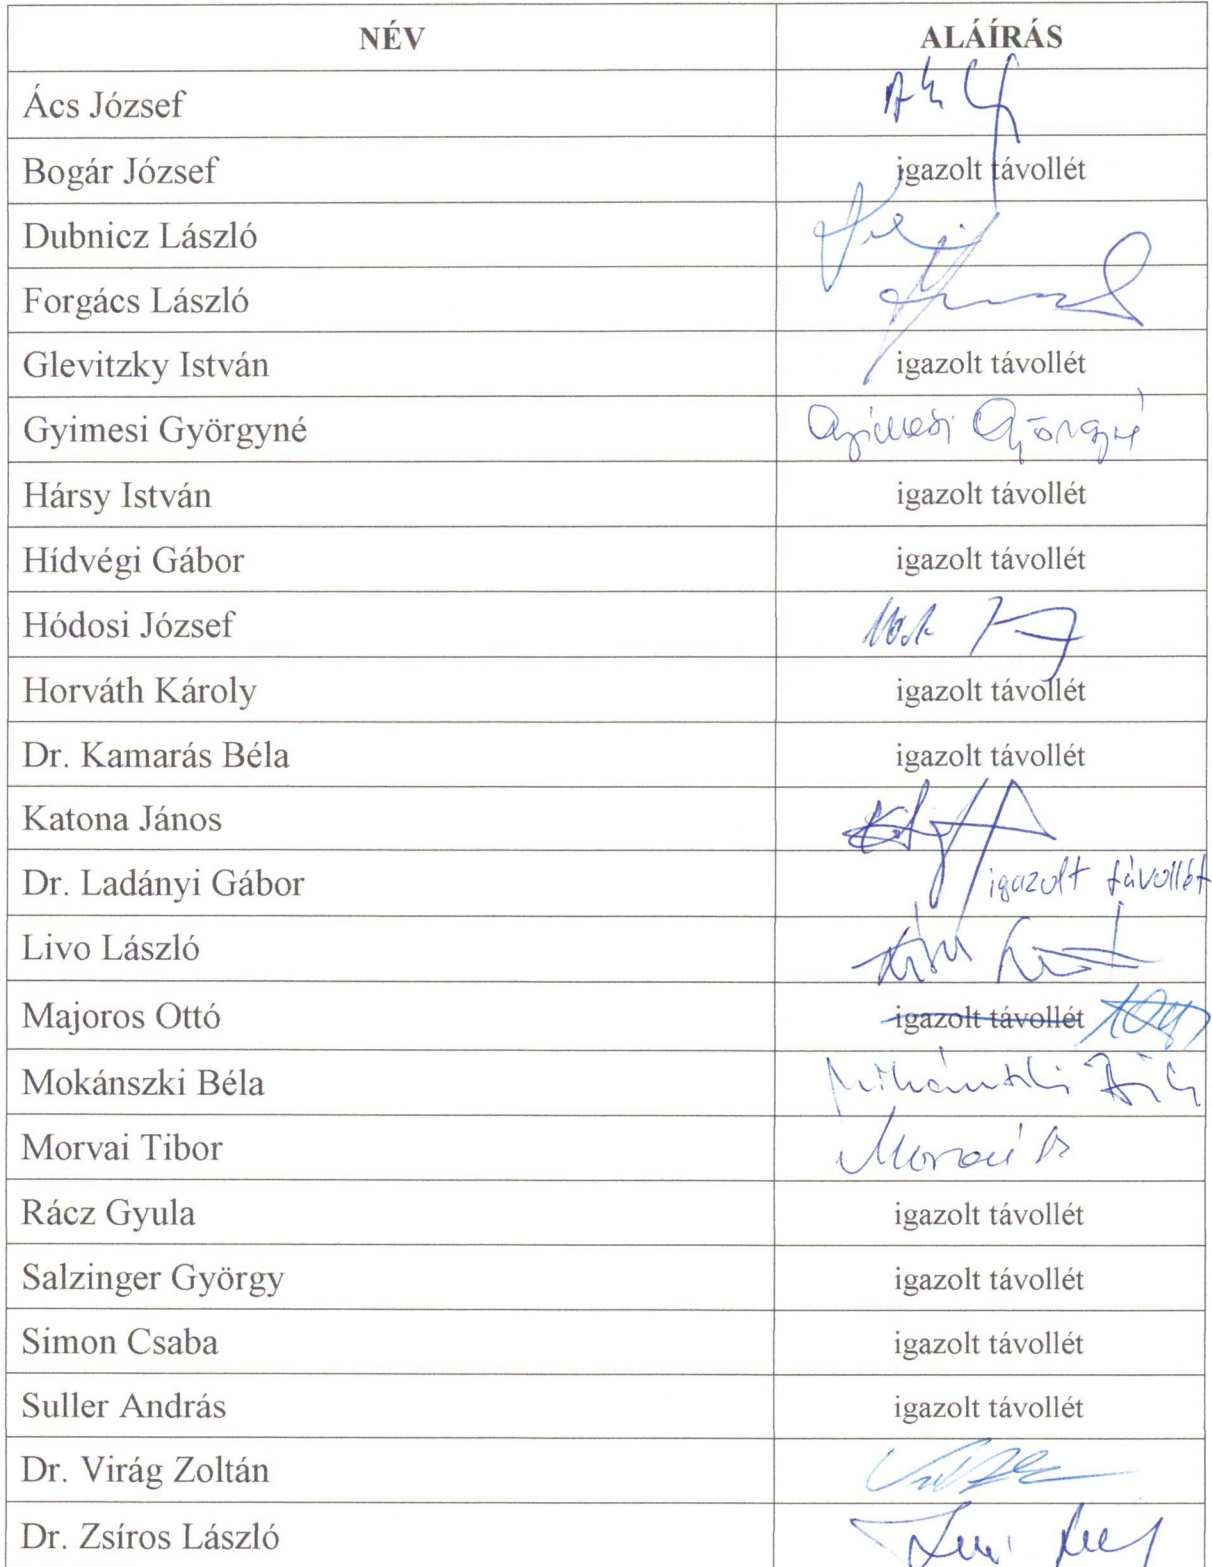 NÉV ALÁÍRÁS
Ács József
Bogár József igazolt távollét
Dubnicz László
Forgács László
Glevitzky István igazolt távollét
Gyimesi Györgyné Gyimesi Györgyné
Hársy István igazolt távollét
Hídvégi Gábor igazolt távollét
Hódosi József
Horváth Károly igazolt távollét
Dr. Kamarás Béla igazolt távollét
Katona János
Dr. Ladányi Gábor igazolt távollét
Livo László
Majoros Ottó igazolt távollét
Mokánszki Béla
Morvai Tibor
Rácz Gyula igazolt távollét
Salzinger György igazolt távollét
Simon Csaba igazolt távollét
Suller András igazolt távollét
Dr. Virág Zoltán
Dr. Zsíros László